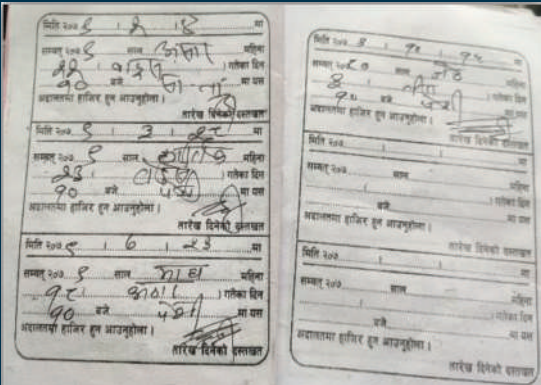 मिति २०७ ९ । २ । ४ मा
सम्वत् २०७ ९ साल असार महिना
२२ । गतेका दिन
१० बजे मा यस
अदालतमा हाजिर हुन आउनुहोला ।
तारेख दिनेको दस्तखत
मिति २०७ ९ । ३ । २८ मा
सम्वत् २०७ ९ साल कार्तिक महिना
२३ । गतेका दिन
१० बजे पेशी मा यस
अदालतमा हाजिर हुन आउनुहोला ।
तारेख दिनेको दस्तखत
मिति २०७ ९ । ७ । २३ मा
सम्वत् २०७ ९ साल माघ महिना
१८ । गतेका दिन
१० बजे पेशी मा यस
अदालतमा हाजिर हुन आउनुहोला ।
तारेख दिनेको दस्तखत
मिति २०७ । १८ मा
सम्वत् २०७ साल जेठ महिना
४ । गतेका दिन
१० बजे पेशी मा यस
अदालतमा हाजिर हुन आउनुहोला ।
तारेख दिनेको दस्तखत
मिति २०७ । । मा
सम्वत् २०७ साल महिना
। । गतेका दिन
बजे मा यस
अदालतमा हाजिर हुन आउनुहोला ।
तारेख दिनेको दस्तखत
मिति २०७ । । मा
सम्वत् २०७ साल महिना
। । गतेका दिन
बजे मा यस
अदालतमा हाजिर हुन आउनुहोला ।
तारेख दिनेको दस्तखत